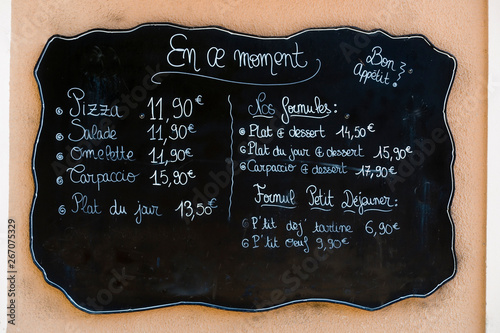 En ce moment
Bon
Appétit!
Pizza 11,90€
Salade 11,90€
Omelette 11,90€
Carpaccio 15,90€
Plat du jour 13,50€
Nos formules:
Plat @ dessert 14,50€
Plat du jour @ dessert 15,90€
Carpaccio @ dessert 17,90€
Formul Petit Déjauner:
P'tit dèj' tartine 6,90€
P'tit oeuf 9,90€
#267075329
Adobe Stock